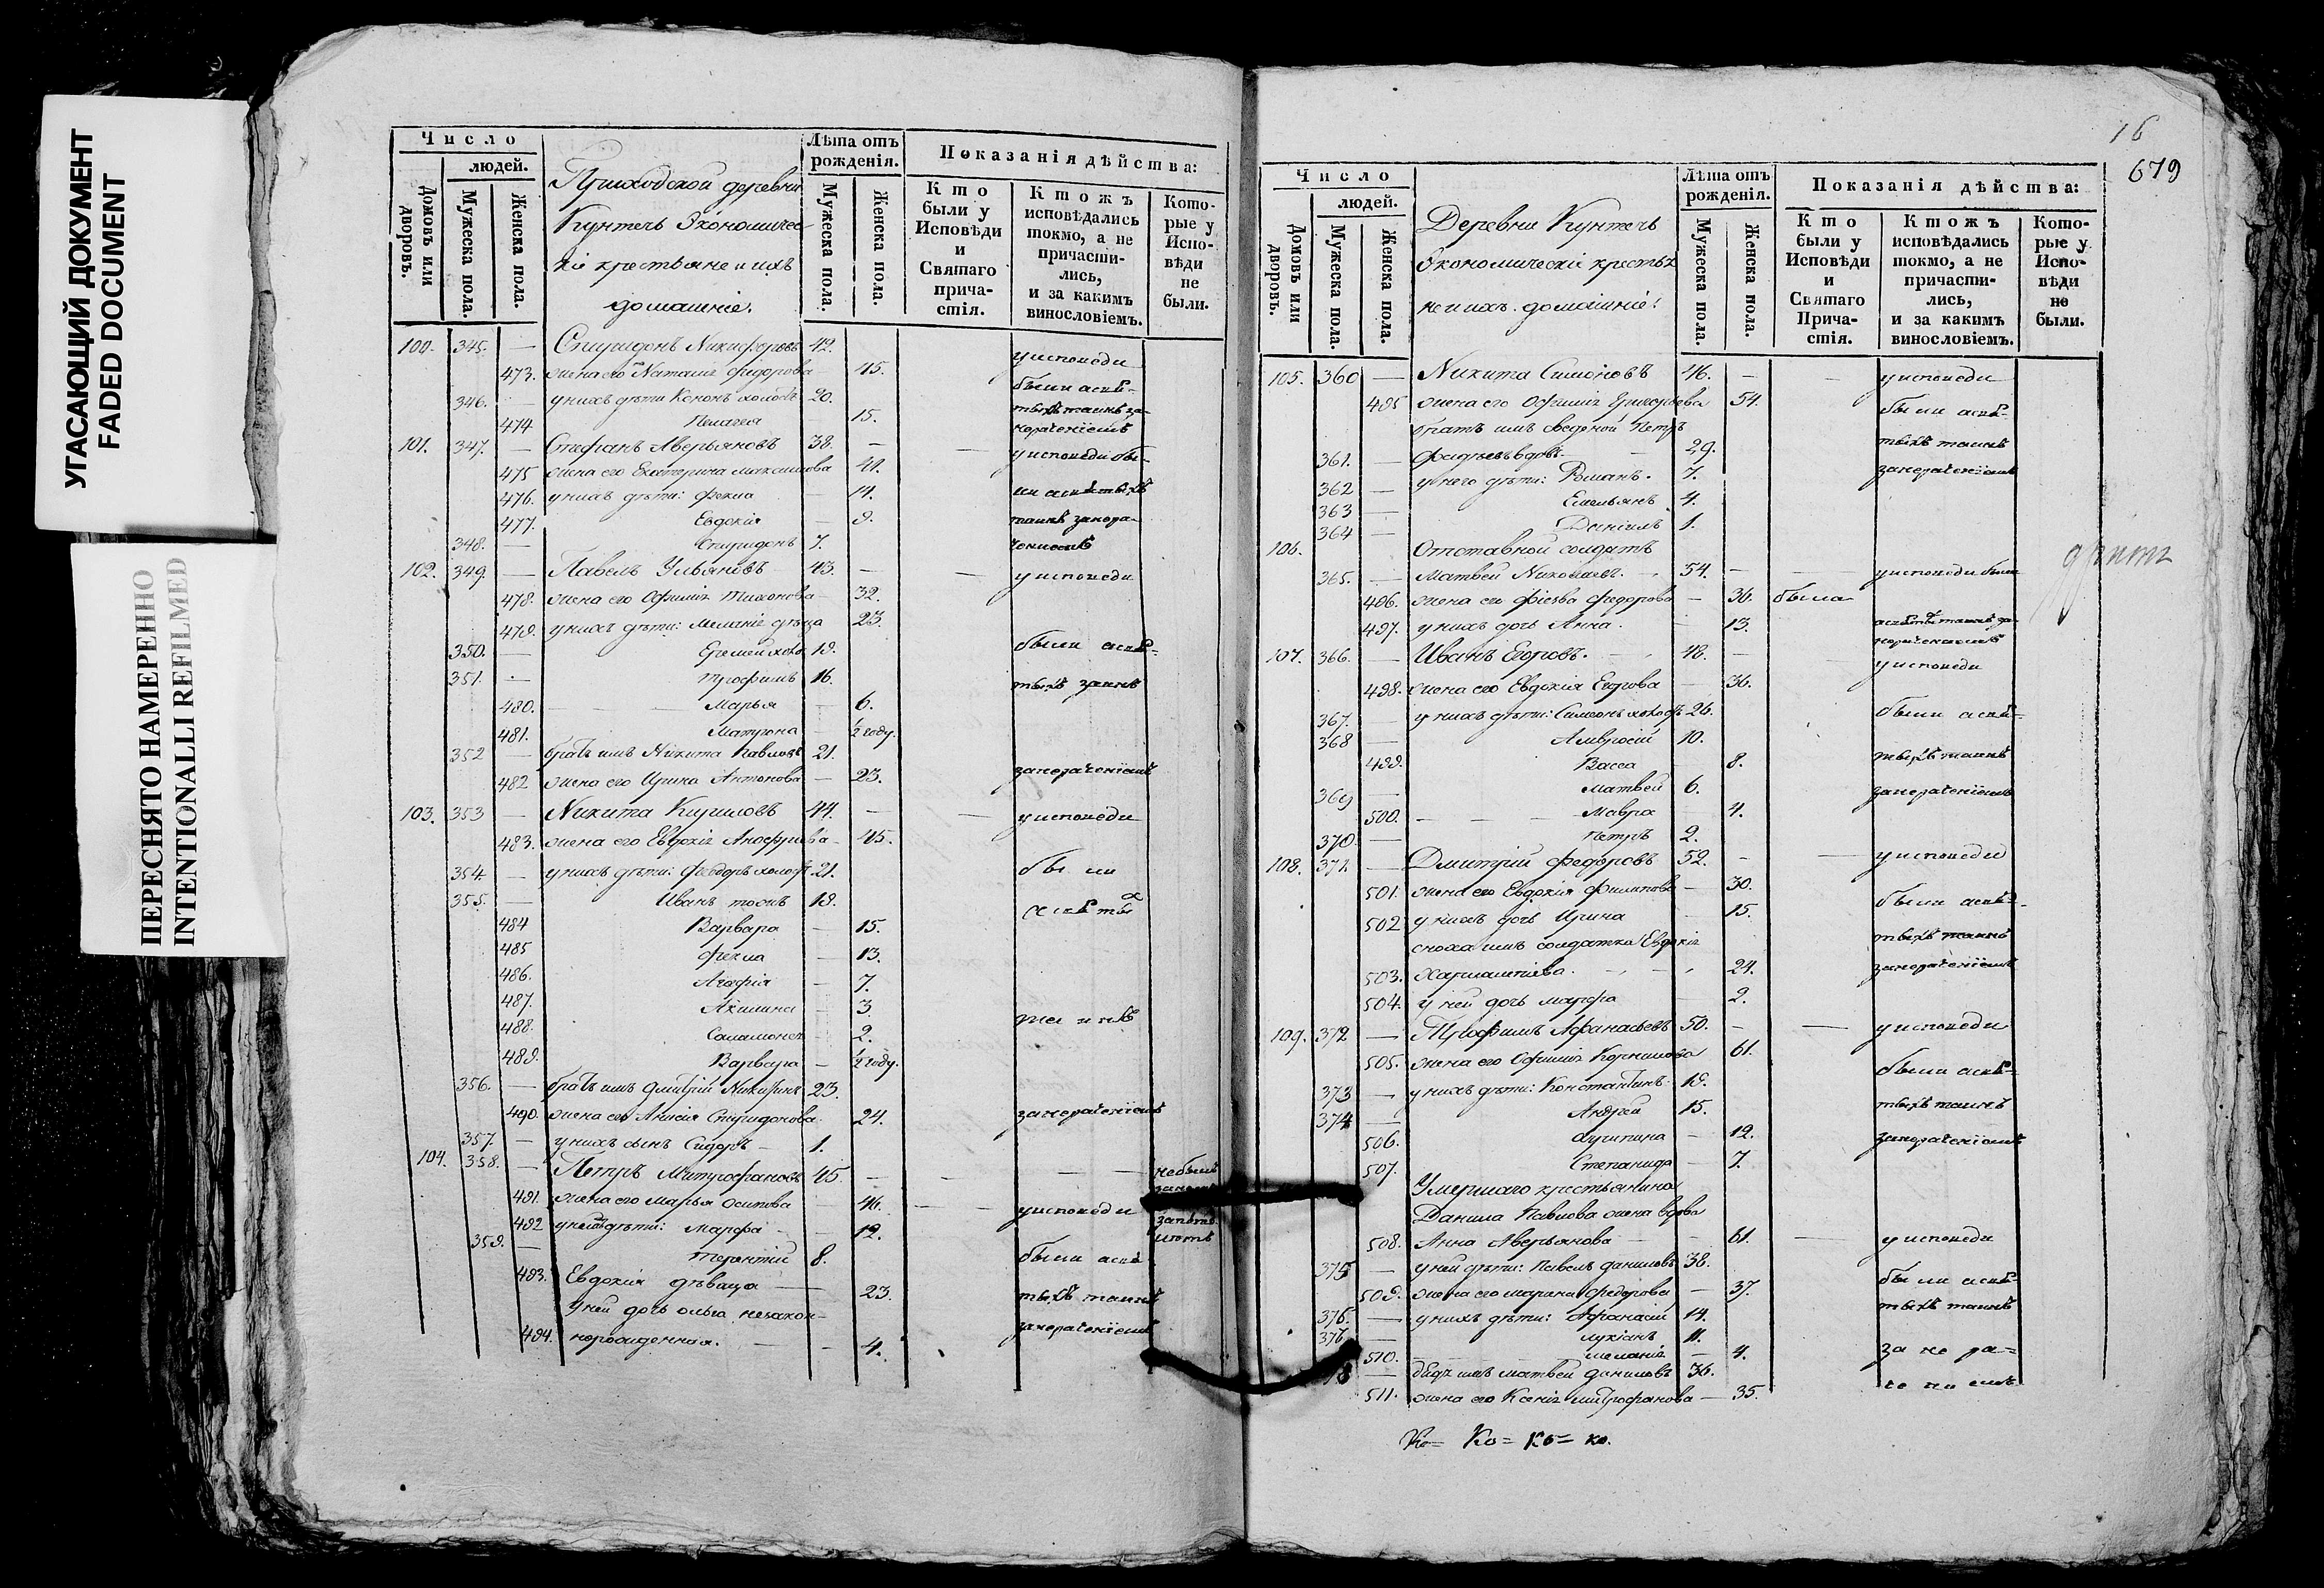 УГАСАЮЩИЙ ДОКУМЕНТ
FADED DOCUMENT
ПЕРЕСНЯТО НАМЕРЕННО
INTENTIONALLI REFILMED
Число
людей.
Домовъ или дворовъ.
Мужеска пола.
Женска пола.
Приходской деревни
Кунтечь Экономичес-
кіе крестьяне и ихъ
домашніе.
Лѣта отъ рожденія.
Мужеска пола.
Женска пола.
Показанія дѣйства:
Кто были у Исповѣди и Святаго причастія.
Ктожъ исповѣдались токмо, а не причастились, и за какимъ винословіемъ.
Которые у Исповѣди не были.
100. 345. — Спиридонъ Никифоровъ 42.
473. жена его Наталія Федорова 45. у исповеди
346. — у нихъ дѣти Кононъ холостъ 20. были а свѣ-
474 Пелагея 15. тыхъ таинъ за нераченіемъ
101. 347. — Стефанъ Аверьяновъ 38. —
475 жена его Екатерина Максимова 41. у исповеди бы-
476. у нихъ дѣти: Фекла — 14. ли а святыхъ
477. Евдокія — 9. таинъ за нера-
348. — Спиридонъ 7. ченіемъ
102. 349. — Павелъ Ульяновъ 43. — — у исповеди
478. жена его Офимія Тихонова 32.
479. у нихъ дѣти: Меланія дѣвца 23.
350. — Еремей холо. 19. были а свѣ-
351. — Трофимъ 16. тыхъ таинъ
480. Марья — 6.
481. Матрона — ½ году.
352 — братъ имъ Никита Павловъ 21.
482 жена его Ирина Антонова — 23. за нераченіемъ
103. 353 — Никита Кириловъ 44. — — у исповеди
483. жена его Евдокія Анофріева — 45.
354. — у нихъ дѣти: Феодоръ холост. 21. были
355. — Иванъ тожъ 19. а свѣты
484 Варвара — 15.
485 Фекла — 13.
486. Агафія — 7.
487. Акилина — 3.
488. Саламонея — 2.
489. Варвара — ½ году.
356. — братъ имъ Дмитрій Никитинъ 23.
490. жена его Анисія Спиридонова 24. за нераченіемъ
357. — у нихъ сынъ Сидоръ — 1.
104. 358. — Петръ Митрофановъ 45. — — — не былъ
491. жена его Марья Осипова — 46. — у исповеди
492 у нихъ дѣти: Марфа — 12.
359. — Терентій 8. были а свѣ-
493. Евдокія дѣваца — 23. тыхъ таинъ
у ней дочь Ольга незакон-
494. норожденная. — — 4. за нераченіемъ
16
679
Число
людей.
Домовъ или дворовъ.
Мужеска пола.
Женска пола.
Деревни Кунтечь
Экономическіе крестья
не и ихъ домашніе:
Лѣта отъ рожденія.
Мужеска пола.
Женска пола.
Показанія дѣйства:
Кто были у Исповѣди и Святаго Причастія.
Ктожъ исповѣдались токмо, а не причастились, и за какимъ винословіемъ.
Которые у Исповѣди не были.
105. 360 — Никита Симоновъ 46. — — у исповеди
495 жена его Офимія Григорьева 54. были а свѣ-
братъ имъ сведеной Петръ тыхъ таинъ
361. — Фадѣевъ вдовъ. — 29. за нераченіемъ
362 — у него дѣти: Романъ. 7.
363 — Емельянъ 4.
364 — Даніилъ 1.
106. Отставной солдатъ
365. — Матвей Николаевъ. — 54. — — у исповеди былъ
496. жена его Федорова — 36. была
497. у нихъ дочь Анна. — 13.
107. 366. — Иванъ Егоровъ. — 48. — у исповеди
498. жена его Евдокія Егорова — 36.
367. — у нихъ дѣти: Симеонъ холостъ 26. были а свѣ-
368 — Амвросій 10.
499. Васса — 8. тыхъ таинъ
369 — Матвей 6. за нераченіемъ
500. — — — Мавра — 4.
370. — Петръ 2.
108. 371 — Дмитрій Федоровъ 52. — — у исповеди
501. жена его Евдокія Филипова — 30. были а свѣ-
502 у нихъ дочь Ирина 15.
сноха имъ солдатка Евдокія тыхъ таинъ
503. Харлампіева. — — 24. за нераченіемъ
504. у ней дочь Марфа 2.
109. 372 — Трофимъ Афанасьевъ 50. — — у исповеди
505. жена его Офимія Корнилова 61. были а свѣ-
373 — у нихъ дѣти: Константинъ. 19.
374 — Андрей 15. тыхъ таинъ
506. — 12. за нераченіемъ
507. Степанида — 7.
Умершаго крестьянина
Данила Павлова жена вдова
508. Анна Аверьянова — 61. — у исповеди
375 — у ней дѣти: Павелъ Даниловъ 38.
509. жена его Марина Федорова — 37. были а свѣ-
376. — у нихъ дѣти: Афанасій 14. тыхъ таинъ
376 — Лукіанъ 11.
510. — — Меланія — 4. за не ра-
— Матвей Даниловъ 36.
511. жена его Ксенія Митрофанова — 35. ченіемъ
Ко= Ко= Ко= ко.